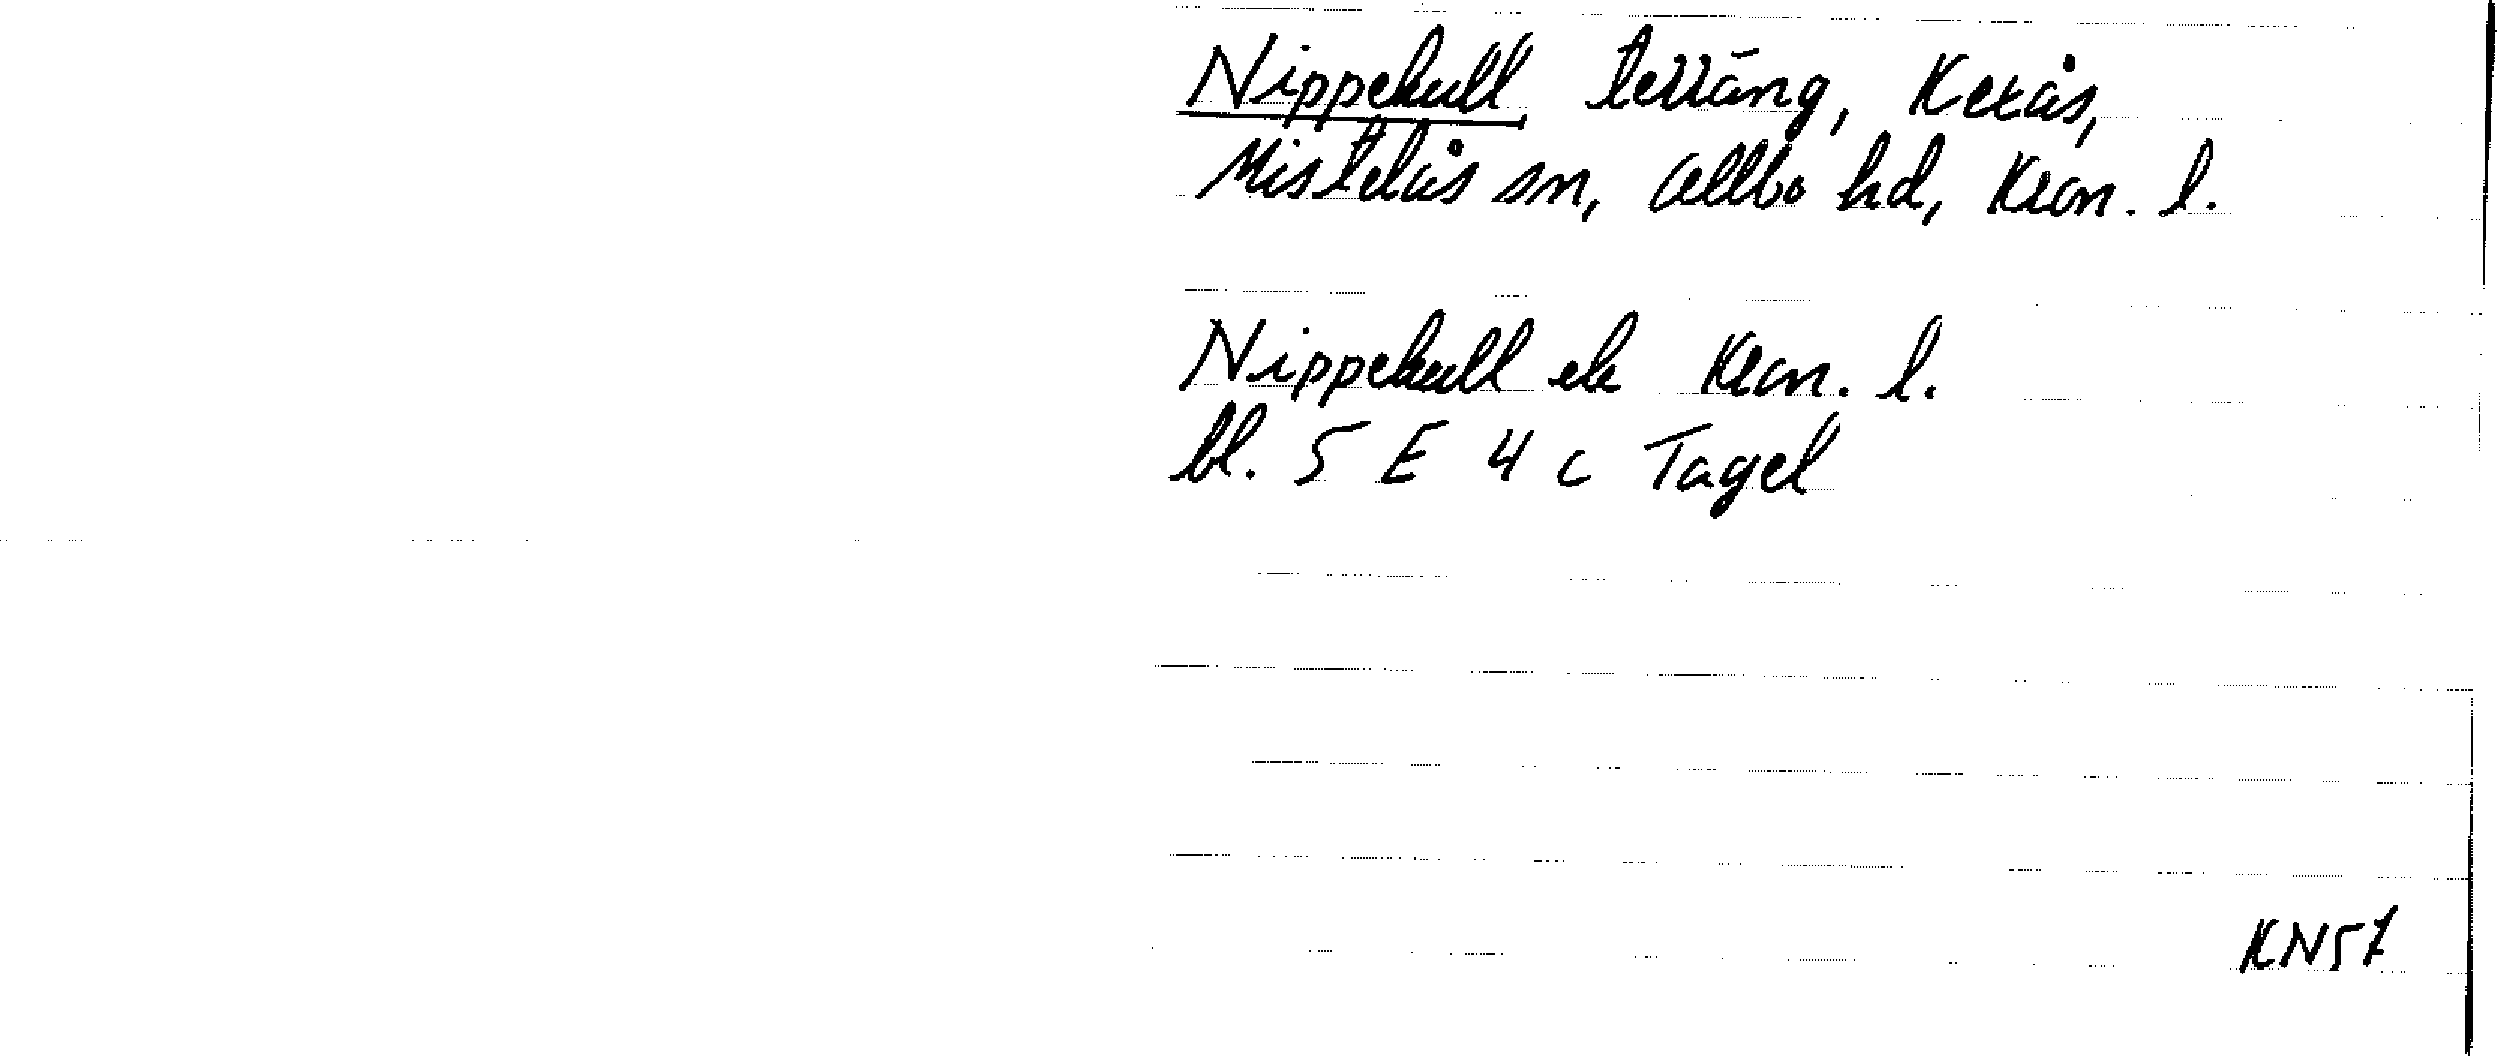 Nippekull terräng, Kexås,
Mistelås sn, Allbo hd, Kron. l.
Nippekull ek Kron. l.
bl. 5 E 4 c Tagel
KN57